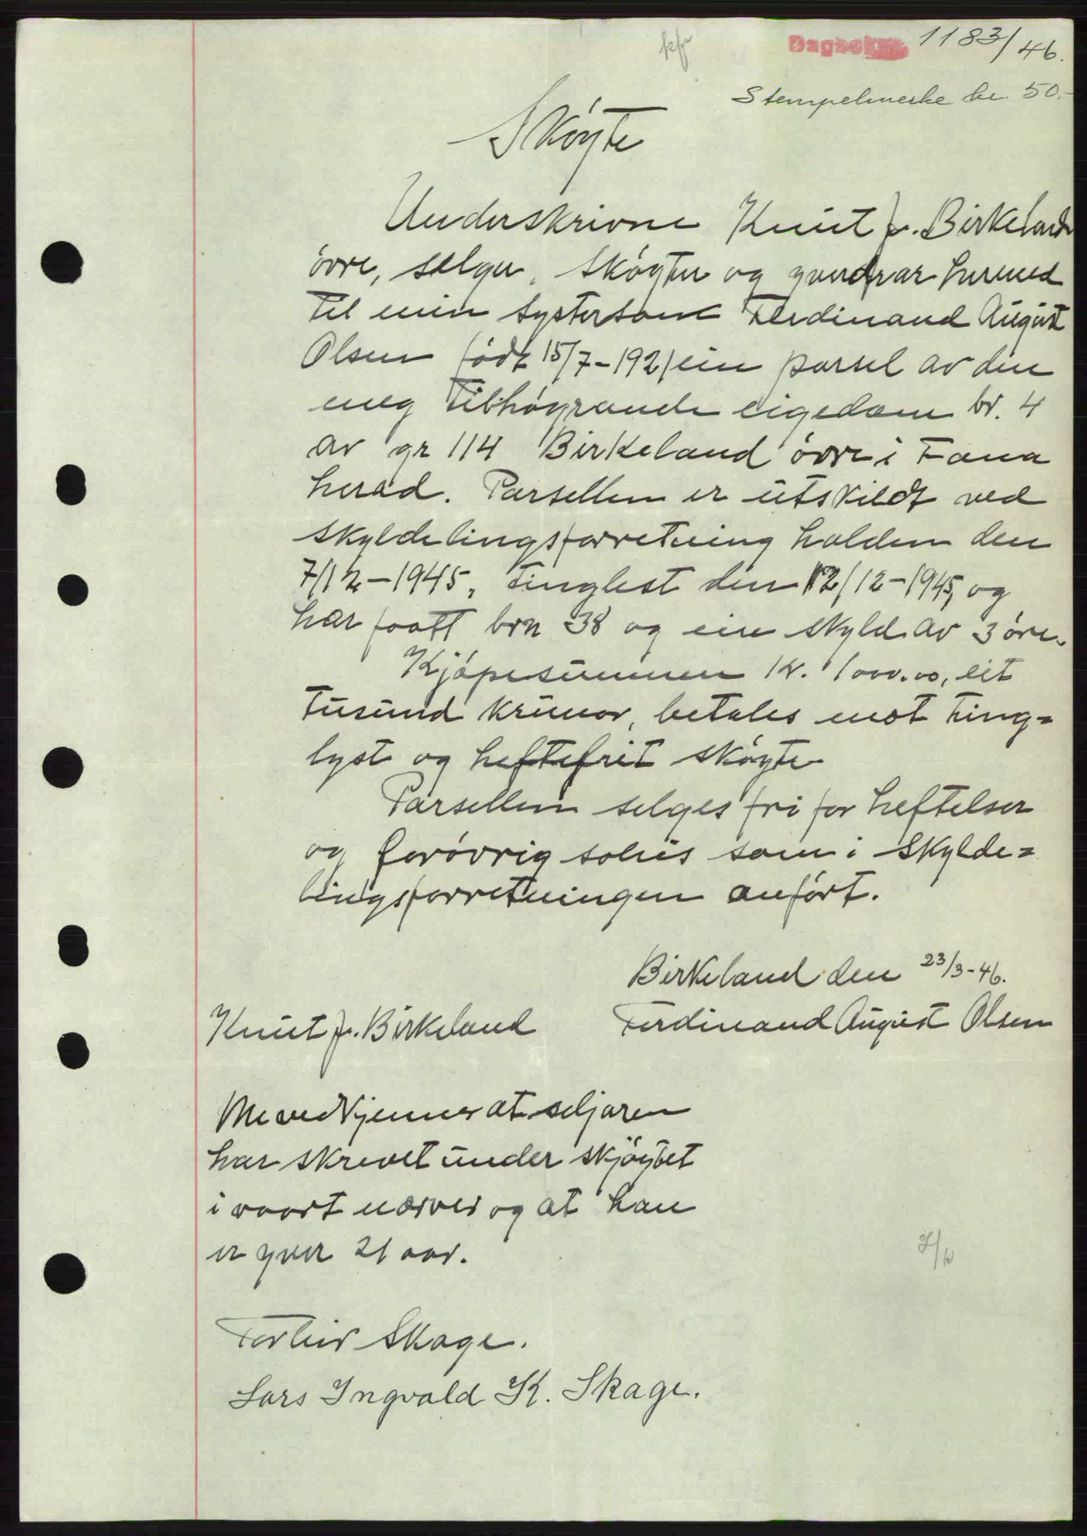 Dagbok 1183/46.
Stempelmerke kr. 50.-
Skøyte
Underskrivne Knut J. Birkeland
övre, selger, skøyter og yverdrar hermed
til min systerson Ferdinand August
Olsen född 15/7-1921 ein parsel av den
meg tilhøyrande eigedom br. 4
av gr 114 Birkeland övre i Fana
herad. Parsellen er utskildt ved
skyldelingsforretning holden den
7/12-1945, tinglest den 12/12-1945, og
har faatt brn 38 og ein skyld av 3 öre.
Kjöpesummen kr. 1000.00, eit
tusund krunor, betales mot ting=
lyst og heftefrit sköyte
Parsellen selges fri for heftelser
og forövrig som i skylde=
lingsforretningen anfört.
Birkeland den 23/3-46.
Knut J. Birkeland Ferdinand August Olsen
Me vedkjenner at seljaren
har skrevet under skjöytet
i vaart nærver og at han
er yver 21 aar.
Torleiv Skage.
Lars Ingvald K. Skage.